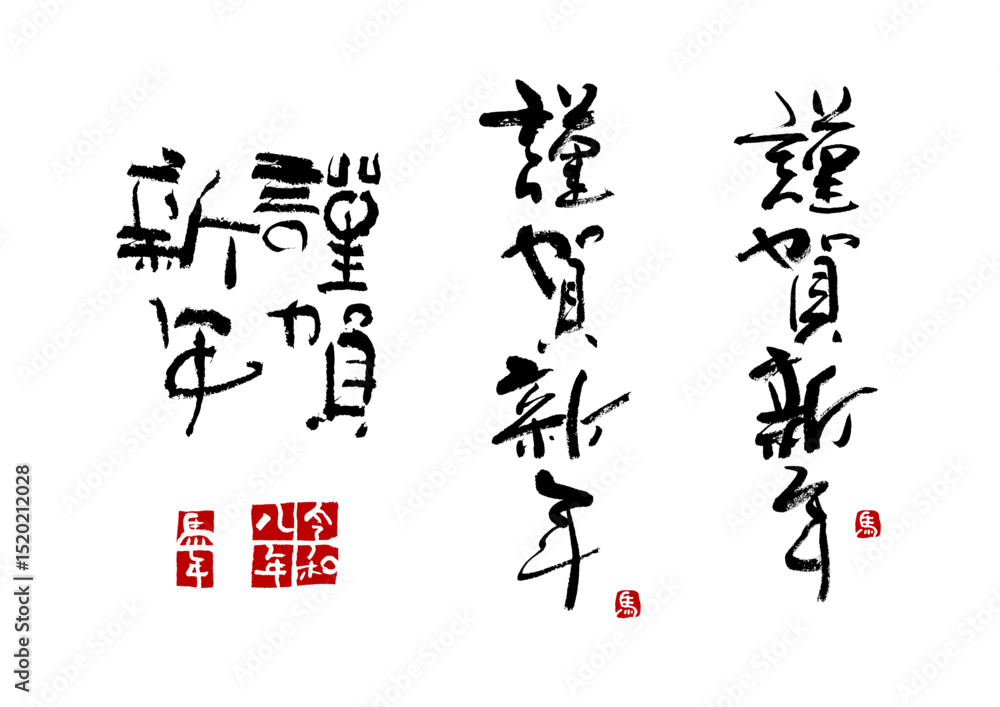 謹賀
新年
馬年
令和
八年
謹賀新年
馬
謹賀新年
馬
Adobe Stock
Adobe Stock | #1520212028